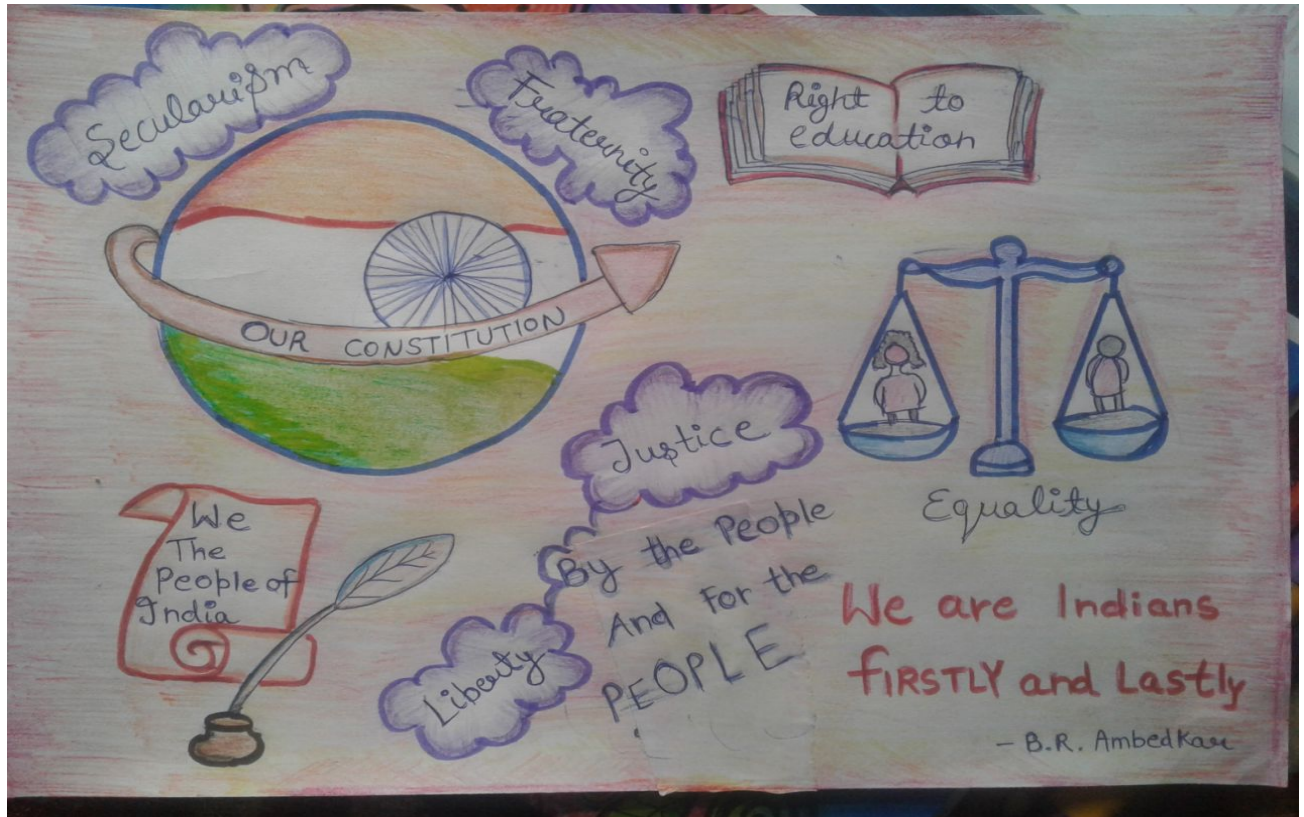 Secularism
Fraternity
Right to
education
OUR CONSTITUTION
Justice
Equality
We
The
People of
India
By the People
And For the
PEOPLE
Liberty
We are Indians
fIRSTLY and Lastly
- B.R. Ambedkar